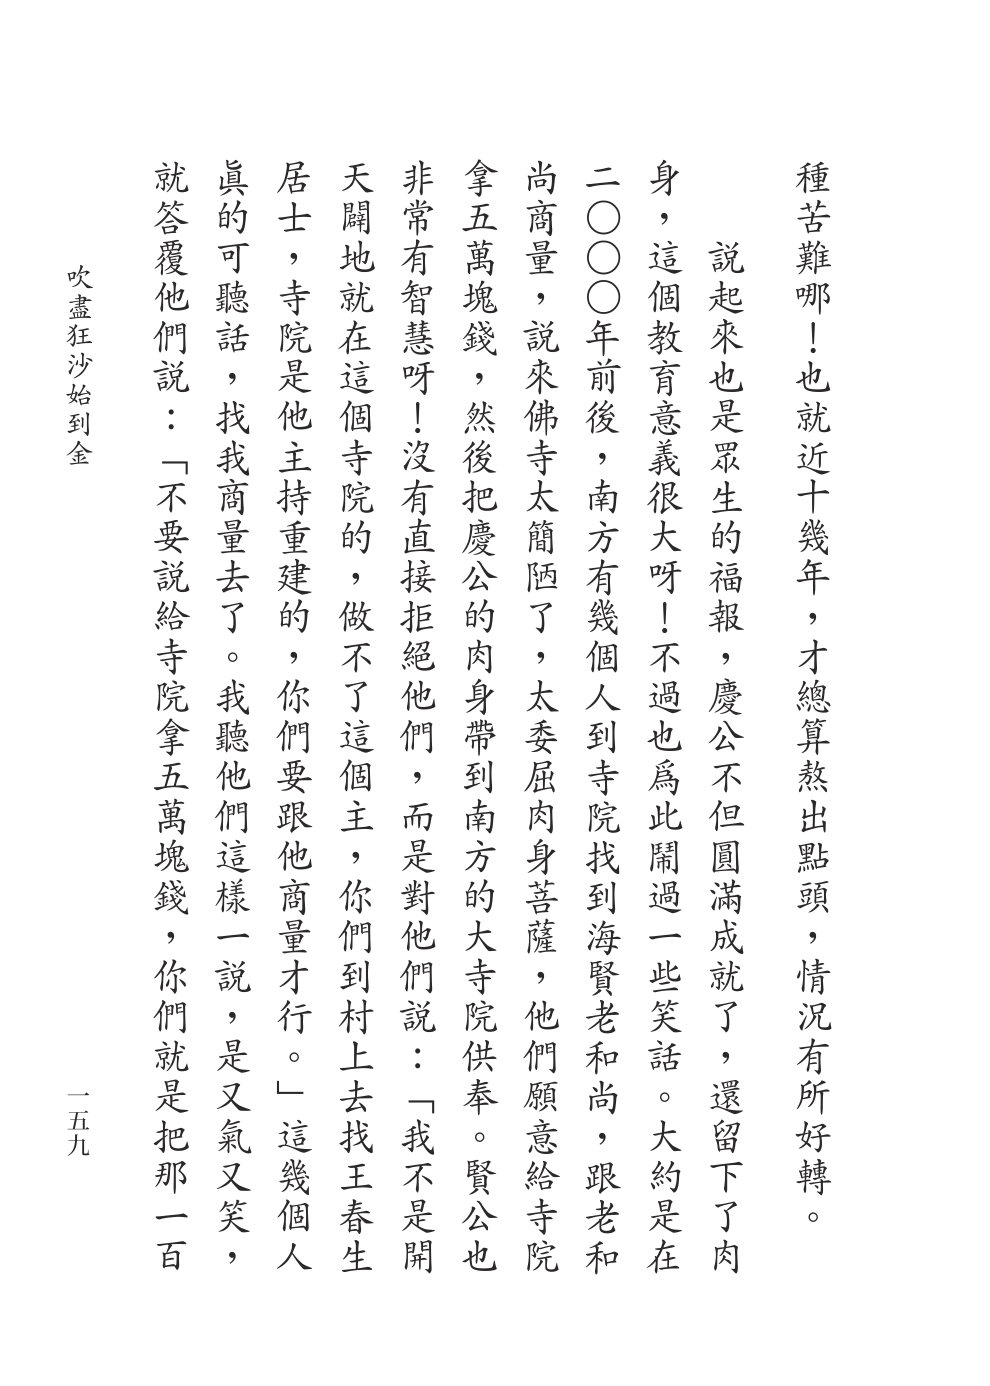 種苦難哪！也就近十幾年，才總算熬出點頭，情況有所好轉。
說起來也是眾生的福報，慶公不但圓滿成就了，還留下了肉
身，這個教育意義很大呀！不過也爲此鬧過一些笑話。大約是在
二〇〇〇年前後，南方有幾個人到寺院找到海賢老和尚，跟老和
尚商量，說來佛寺太簡陋了，太委屈肉身菩薩，他們願意給寺院
拿五萬塊錢，然後把慶公的肉身帶到南方的大寺院供奉。賢公也
非常有智慧呀！沒有直接拒絕他們，而是對他們說：「我不是開
天闢地就在這個寺院的，做不了這個主，你們到村上去找王春生
居士，寺院是他主持重建的，你們要跟他商量才行。」這幾個人
眞的可聽話，找我商量去了。我聽他們這樣一說，是又氣又笑，
就答覆他們說：「不要說給寺院拿五萬塊錢，你們就是把那一百
吹盡狂沙始到金
一五九